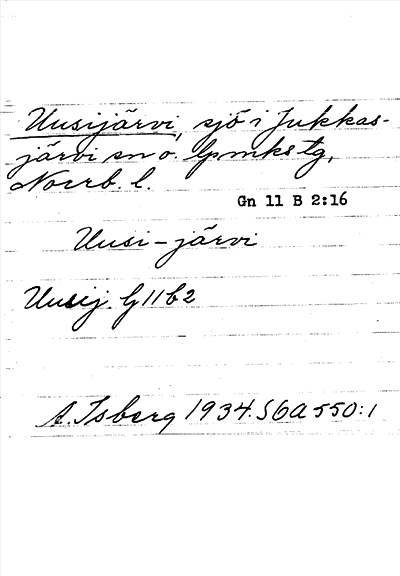 Uusijärvi, sjö i Jukkas-
järvi sn o. lpmks tg,
Norrb. l.
Gn 11 B 2:16
Uusi-järvi
Uusij. G11b2
A. Isberg 1934. S6a 550:1